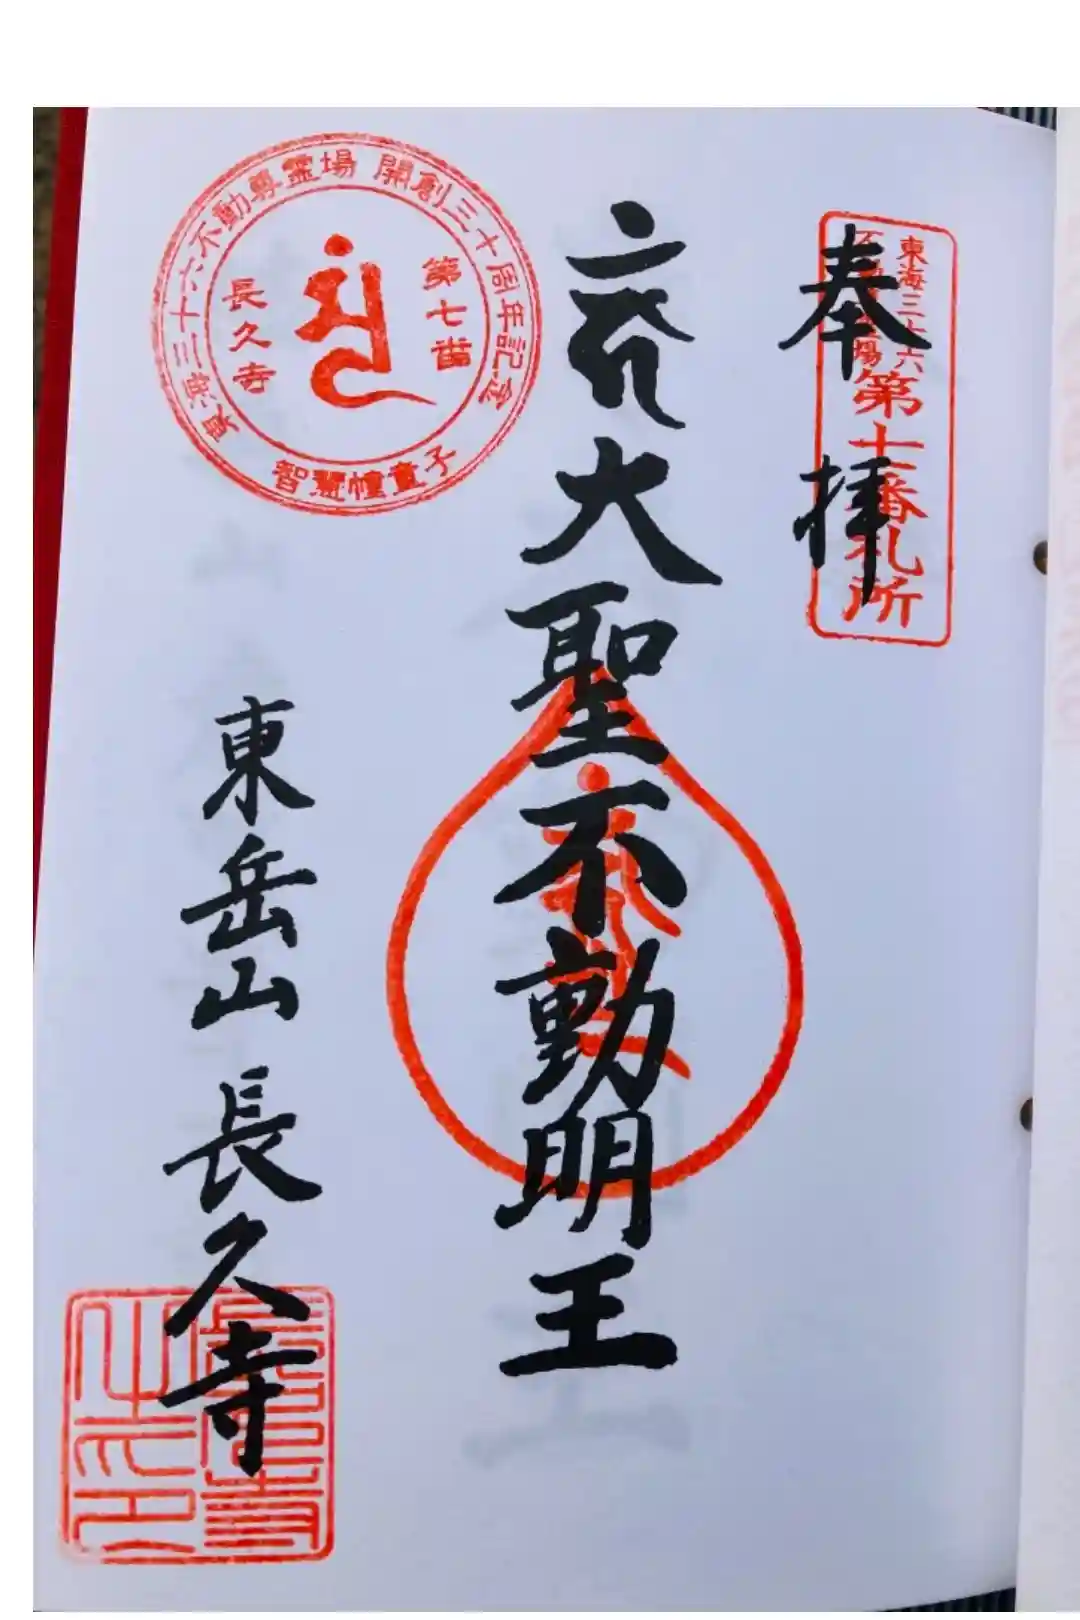 奉拝
東海三十六
第七番札所
大聖不動明王
東海三十六不動尊霊場 開創三十周年記念
第七番
長久寺
智慧幢童子
東岳山 長久寺
長久寺之印